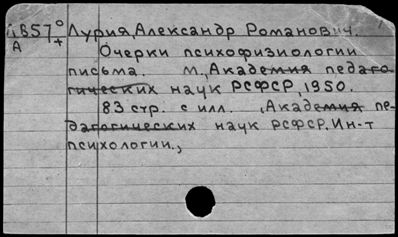 4857° Лурия, Александр Романович.
А +
Очерки психофизиологии
письма. М., Академия педаго-
гических наук РСФСР, 1950.
83 стр. с илл. , Академия пе-
дагогических наук РСФСР. Ин-т
психологии.,